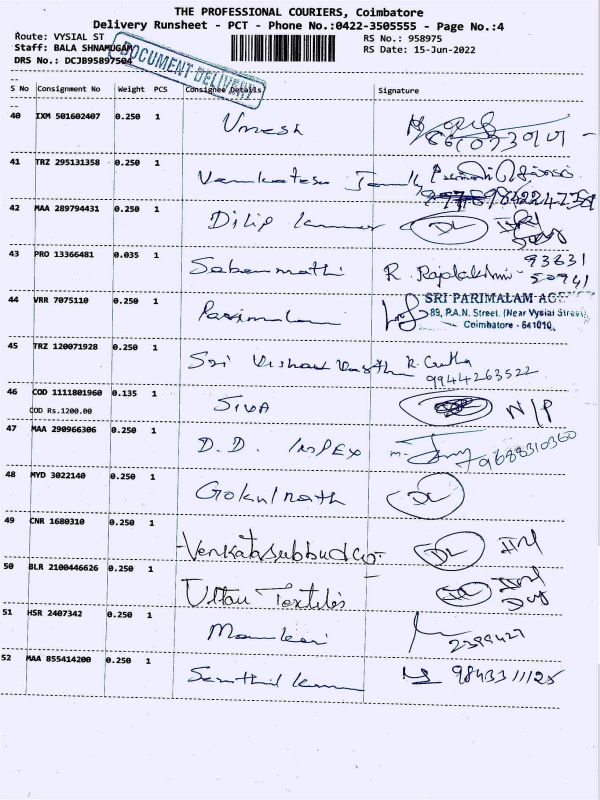 THE PROFESSIONAL COURIERS, Coimbatore
Delivery Runsheet - PCT - Phone No.:0422-3505555 - Page No.:4
Route: VYSIAL ST
RS No.: 958975
Staff: BALA SHNAMUGAM
RS Date: 15-Jun-2022
DRS No.: DCJB95897504
DOCUMENT DELIVERY
S No Consignment No Weight PCS Consignee Details Signature
40 IXM 501602407 0.250 1 Umesh
41 TRZ 295131358 0.250 1 Venkatesa
42 MAA 289794431 0.250 1 Dilip Kumar DL
43 PRO 13366481 0.035 1 Sabarmathi R. Rajalakshmi 93831
50941
44 VRR 7075110 0.250 1 Parimalam
SRI PARIMALAM AGE
89, P.A.N. Street, (Near Vysial Street)
Coimbatore - 641010.
45 TRZ 120071928 0.250 1 Sri R.
9944263522
46 COD 1111801960 0.135 1 SIVA N/P
COD Rs.1200.00
47 MAA 290966306 0.250 1 D.D. Impex 9688310360
48 MYD 3022140 0.250 1 Gokulnath DL
49 CNR 1680310 0.250 1 Venkatasubbu & co DL
50 BLR 2100446626 0.250 1 Uttam Textiles
51 HSR 2407342 0.250 1 2399427
52 MAA 855414200 0.250 1 Senthil Kumar 98433 11125